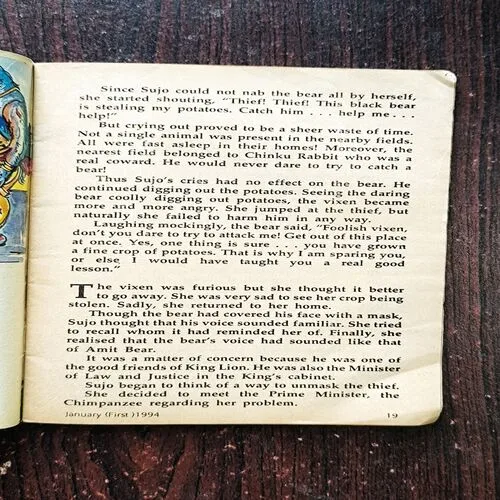 Since Sujo could not nab the bear all by herself,
she started shouting, "Thief! Thief! This black bear
is stealing my potatoes. Catch him . . . help me . . .
help!"
But crying out proved to be a sheer waste of time.
Not a single animal was present in the nearby fields.
All were fast asleep in their homes! Moreover, the
nearest field belonged to Chinku Rabbit who was a
real coward. He would never dare to try to catch a
bear!
Thus Sujo's cries had no effect on the bear. He
continued digging out the potatoes. Seeing the daring
bear coolly digging out potatoes, the vixen became
more and more angry. She jumped at the thief, but
naturally she failed to harm him in any way.
Laughing mockingly, the bear said, "Foolish vixen,
don't you dare to try to attack me! Get out of this place
at once. Yes, one thing is sure . . . you have grown
a fine crop of potatoes. That is why I am sparing you,
or else I would have taught you a real good
lesson."
The vixen was furious but she thought it better
to go away. She was very sad to see her crop being
stolen. Sadly, she returned to her home.
Though the bear had covered his face with a mask,
Sujo thought that his voice sounded familiar. She tried
to recall whom it had reminded her of. Finally, she
realised that the bear's voice had sounded like that
of Amit Bear.
It was a matter of concern because he was one of
the good friends of King Lion. He was also the Minister
of Law and Justice in the King's cabinet.
Sujo began to think of a way to unmask the thief.
She decided to meet the Prime Minister, the
Chimpanzee regarding her problem.
January (First) 1994 19